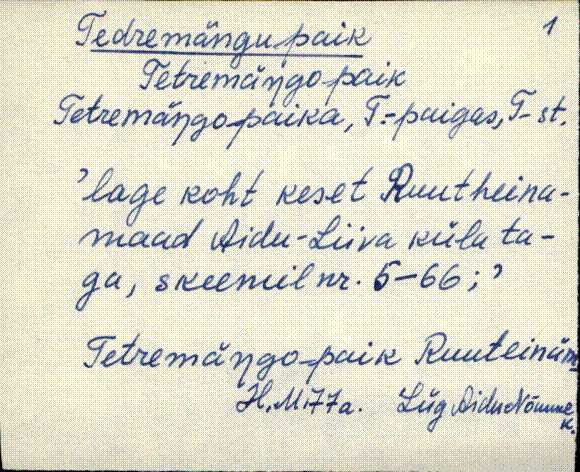 Tedremängu paik 1
Tetremäŋgo paik
Tetremäŋgo-paika, T.-paigas, T- st.
'lage koht keset Ruutheina-
maad Aidu-Liiva küla ta-
ga, skeemil nr. 5-66;'
Tetremäŋgo-paik Ruuteinäm
H. M. 77a. Lüg Aidu Nõmme
k.